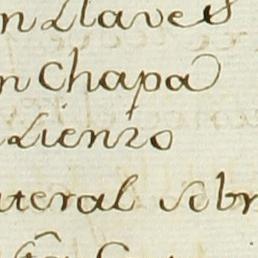 n Llaves
n Chapa
Lienzo
ateral sobr